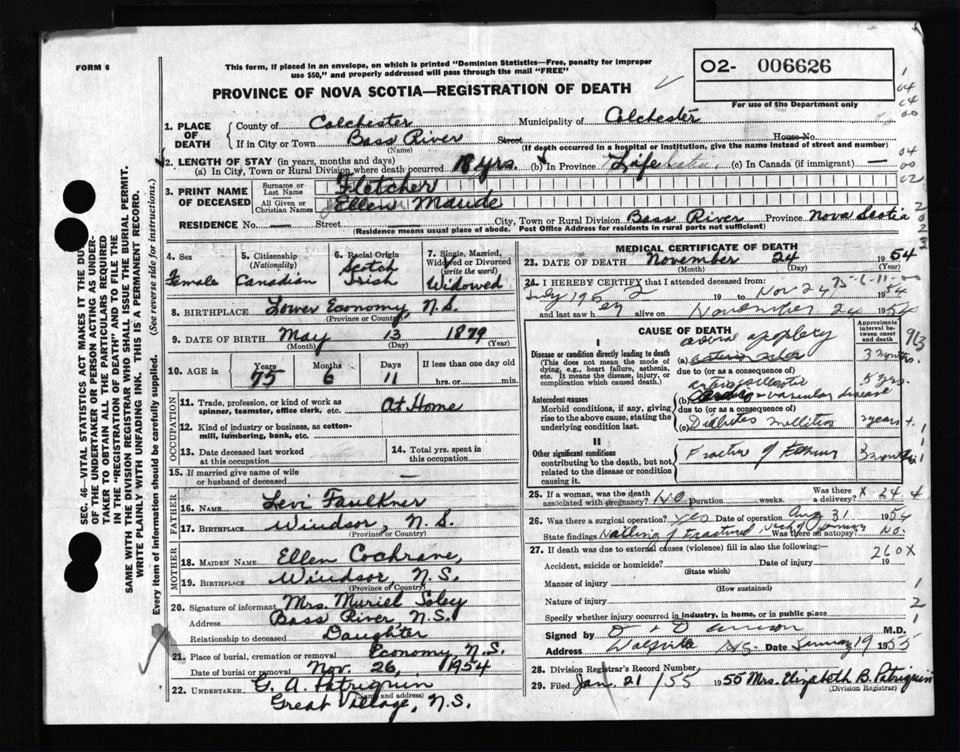 FORM 6
This form, if placed in an envelope, on which is printed "Dominion Statistics—Free, penalty for improper
use $50," and properly addressed will pass through the mail "FREE"
PROVINCE OF NOVA SCOTIA—REGISTRATION OF DEATH
O2- 006626
For use of the Department only
1. PLACE OF DEATH
County of Colchester Municipality of Colchester
If in City or Town Bass River Street House No.
(Name) (If death occurred in a hospital or institution, give the name instead of street and number)
2. LENGTH OF STAY (in years, months and days)
(a) In City, Town or Rural Division where death occurred 18 yrs. (b) In Province Life (c) In Canada (if immigrant) —
3. PRINT NAME OF DECEASED
Surname or Last Name Fletcher
All Given or Christian Names Ellen Maude
RESIDENCE No. — Street — City, Town or Rural Division Bass River Province Nova Scotia
(Residence means usual place of abode. Post Office Address for residents in rural parts not sufficient)
4. Sex Female
5. Citizenship (Nationality) Canadian
6. Racial Origin Scotch Irish
7. Single, Married, Widowed or Divorced (write the word) Widowed
8. BIRTHPLACE Lower Economy, N.S.
(Province or Country)
9. DATE OF BIRTH May 13 1879
(Month) (Day) (Year)
10. AGE in Years 75 Months 6 Days 11 If less than one day hrs. or min.
OCCUPATION
11. Trade, profession, or kind of work as spinner, teamster, office clerk, etc. At Home
12. Kind of industry or business, as cotton-mill, lumbering, bank, etc.
13. Date deceased last worked at this occupation
14. Total yrs. spent in this occupation
15. If married give name of wife or husband of deceased
FATHER
16. NAME Levi Faulkner
17. BIRTHPLACE Windsor, N.S.
(Province or Country)
MOTHER
18. MAIDEN NAME Ellen Cochrane
19. BIRTHPLACE Windsor, N.S.
(Province of Country)
20. Signature of informant Mrs. Muriel Soley
Address Bass River, N.S.
Relationship to deceased Daughter
21. Place of burial, cremation or removal Economy, N.S.
Date of burial or removal Nov. 26, 1954
22. UNDERTAKER G. A. Patriquin
(Name and address)
Great Village, N.S.
MEDICAL CERTIFICATE OF DEATH
23. DATE OF DEATH November 24 1954
(Month) (Day) (Year)
24. I HEREBY CERTIFY that I attended deceased from:
19 to Nov 24 1954
and last saw h er alive on November 24 1954
CAUSE OF DEATH
Approximate interval between onset and death
I
Disease or condition directly leading to death
(This does not mean the mode of dying, e.g., heart failure, asthenia, etc. It means the disease, injury, or complication which caused death.)
(a) apoplexy 3 months
due to (or as a consequence of)
Antecedent causes
Morbid conditions, if any, giving rise to the above cause, stating the underlying condition last.
(b) vascular disease 5 yrs.
due to (or as a consequence of)
(c) Diabetes mellitus 2 years +
II
Other significant conditions
contributing to the death, but not related to the disease or condition causing it.
Fracture of femur 3 months
25. If a woman, was the death associated with pregnancy? NO Duration weeks. Was there a delivery? X
26. Was there a surgical operation? yes Date of operation Aug 31 1954
State findings Nailing of fractured neck of femur Was there an autopsy? No.
27. If death was due to external causes (violence) fill in also the following:—
260X
Accident, suicide or homicide? Date of injury 19
(State which)
Manner of injury
(How sustained)
Nature of injury
Specify whether injury occurred in industry, in home, or in public place
Signed by M.D.
Address N.S. Date January 19 1955
28. Division Registrar's Record Number
29. Filed Jan. 21/55 1955 Mrs. Elizabeth B. Patriquin
(Division Registrar)
SEC. 46—VITAL STATISTICS ACT MAKES IT THE DUTY
OF THE UNDERTAKER OR PERSON ACTING AS UNDER-
TAKER TO OBTAIN ALL THE PARTICULARS REQUIRED
IN THE "REGISTRATION OF DEATH" AND TO FILE THE
SAME WITH THE DIVISION REGISTRAR WHO SHALL ISSUE THE BURIAL PERMIT.
WRITE PLAINLY WITH UNFADING INK. THIS IS A PERMANENT RECORD.
Every item of information should be carefully supplied. (See reverse side for instructions.)